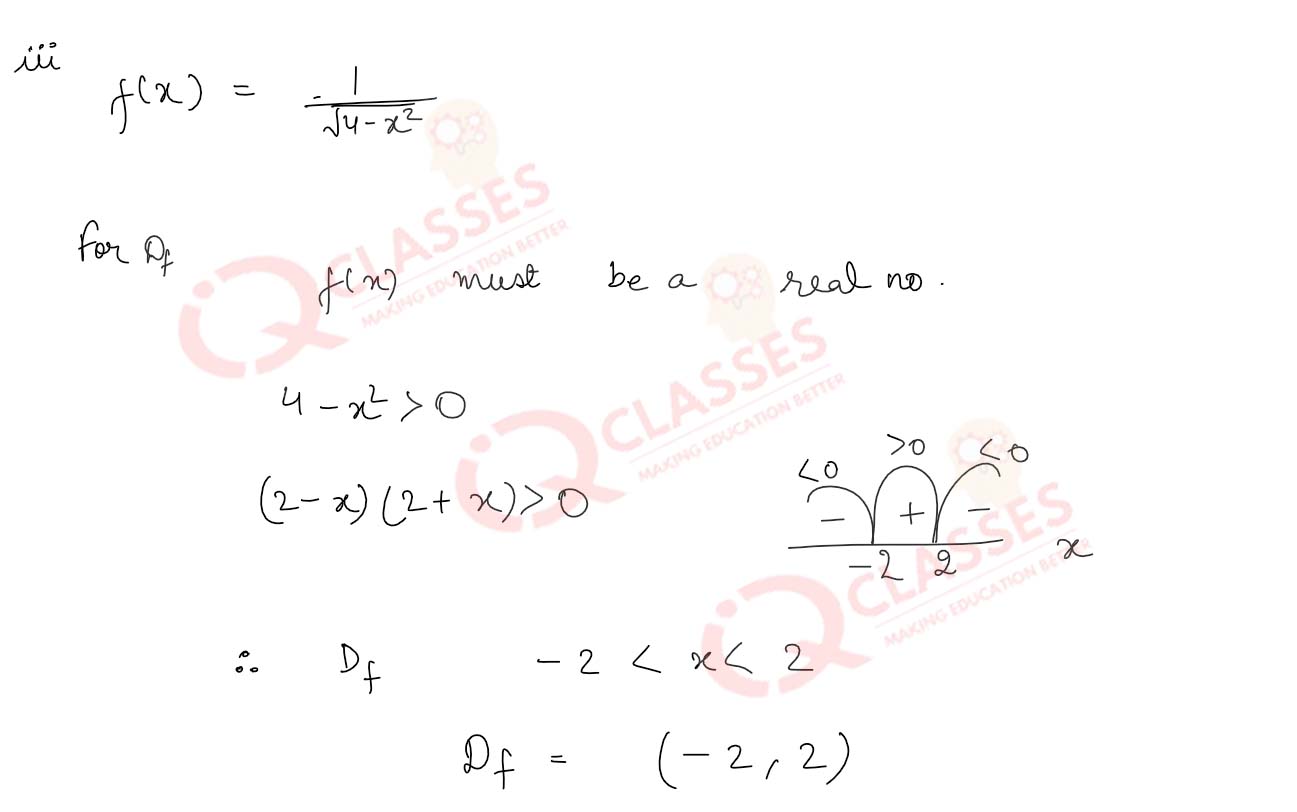 iii
f(x) = 1/√4-x²
For Df
f(x) must be a real no.
4 - x² > 0
(2 - x) (2 + x) > 0
<0 >0 <0
- + -
-2 2 x
∴ Df -2 < x < 2
Df = (-2, 2)
Q CLASSES
MAKING EDUCATION BETTER
Q CLASSES
MAKING EDUCATION BETTER
Q CLASSES
MAKING EDUCATION BETTER